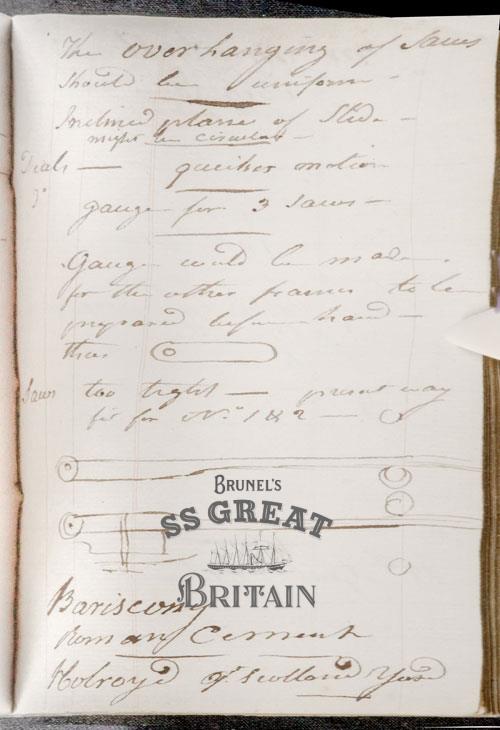 The overhanging of Saws
should be uniform –
Inclined plane of Slide –
might be circular –
Trials — quicker motion
do
gauge for 3 Saws –
Gauge could be made
for the other frames to be
prepared before hand –
thus
Saws too tight — present way
fit for No. 1 & 2 —
BRUNEL'S
SS GREAT
BRITAIN
Roman Cement
Holroyd of Scotland Yard